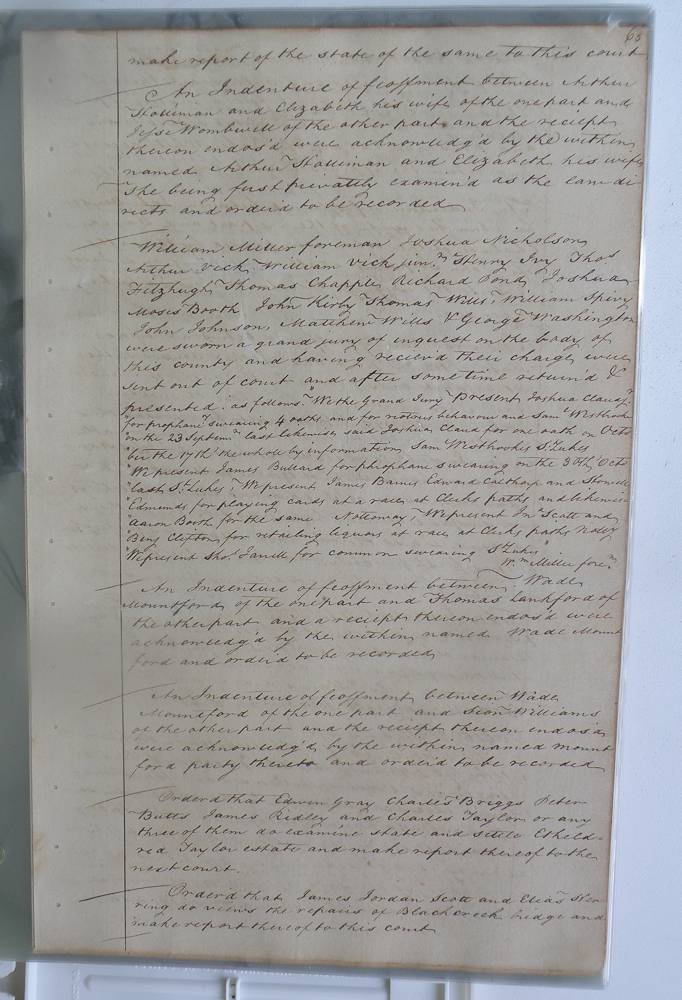 65
make report of the state of the same to this court
An Indenture of feoffment between Arthur
and Elizabeth his wife of the one part and
Jesse Wombwell of the other part and the reciept
thereon endos'd were acknowledg'd by the within
named Arthur and Elizabeth his wife
She being first privately examin'd as the law di
rects and order'd to be recorded
William Miller foreman Joshua Nicholson
Arthur Vick William Vick junr Henry Ivy Thos
Fitzhugh Thomas Chapple Richard Pond Joshua
Moses Booth John Kirby Thomas Wills William Spivy
John Johnson Matthew Wills & George Washington
were sworn a grand jury of inquest on the body of
this county and having reciev'd their charge were
sent out of court and after some time return'd &
presented as follows "We the Grand Jury Present Joshua Claud
"for prophane swearing 4 oaths and for riotous behavour and Saml Westbrook
"on the 23 Septemr last likewise said Joshua Claud for one oath on Octo
"ber the 17th the whole by information Saml Westbrookes St Lukes
"We present James Bullard for phrophane swearing on the 3th Octo
"last St Lukes We present James Barnes Edward Calthorp and
"Edmunds for playing cards at a race at Clerks paths and likewise
"Aaron Booth for the same Nottoway We present Jno Scott and
"Benj Clifton for retailing liquors at race at Clerks paths Notty
"We present Thos for common swearing St Lukes
Wm Miller foren
An Indenture of feoffment between Wade
Mountford of the one part and Thomas Lankford of
the other part and a reciept thereon endos'd were
acknowledg'd by the within named Wade Mount
ford and order'd to be recorded
An Indenture of feoffment between Wade
Mountford of the one part and Williams
of the other part and the reciept thereon endos'd
were acknowledg'd by the within named mount
ford party thereto and order'd to be recorded
Orderd that Edwin Gray Charles Briggs Peter
Butts James Ridley and Charles Taylor or any
three of them do examine state and settle Etheld
red Taylor estate and make report thereof to the
next court.
Order'd that James Jordan Scott and Elias Her
ring do view the repairs of Blackcreek bridge and
make report thereof to this court